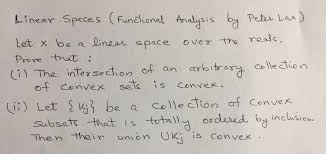 Linear Spaces (Functional Analysis by Peter Lax)
Let x be a linear space over the reals.
Prove that :
(i) The intersection of an arbitrary collection
of convex sets is convex.
(ii) Let {Kj} be a collection of convex
subsets that is totally ordered by inclusion.
Then their union UKj is convex.